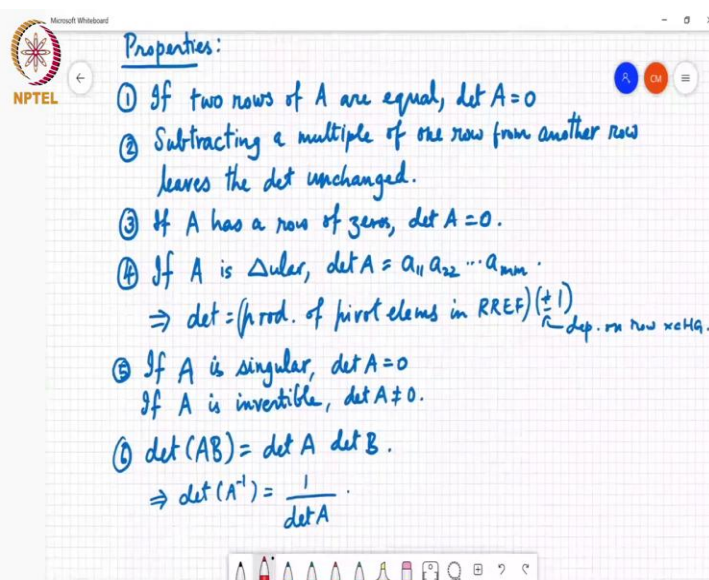 Microsoft Whiteboard
NPTEL
CM
Properties:
① If two rows of A are equal, det A = 0
② Subtracting a multiple of one row from another row
leaves the det unchanged.
③ If A has a row of zeros, det A = 0.
④ If A is Δular, det A = a₁₁ a₂₂ ... aₘₘ.
⇒ det = (prod. of pivot elems in RREF) (±1)
dep. on row xcHG.
⑤ If A is singular, det A = 0
If A is invertible, det A ≠ 0.
⑥ det (AB) = det A det B.
⇒ det (A⁻¹) = 1/det A.